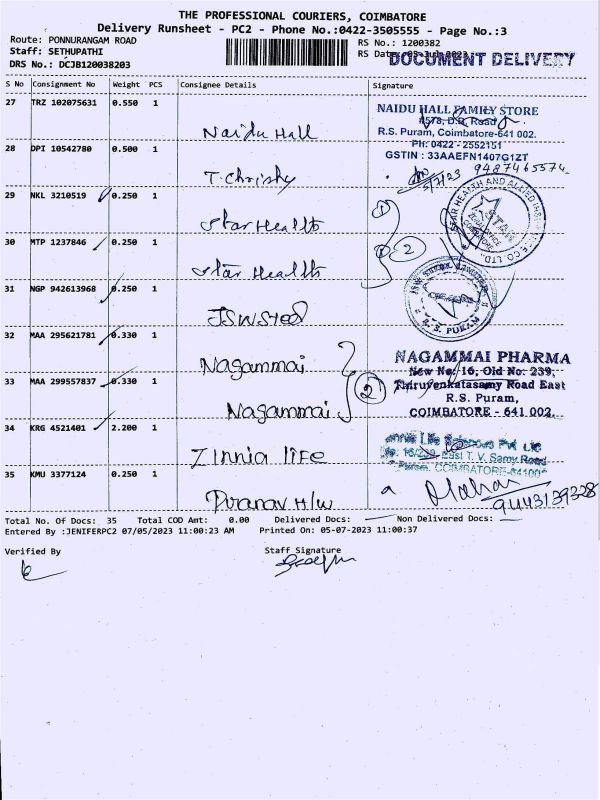 THE PROFESSIONAL COURIERS, COIMBATORE
Delivery Runsheet - PC2 - Phone No.:0422-3505555 - Page No.:3
Route: PONNURANGAM ROAD
RS No.: 1200382
Staff: SETHUPATHI
RS Date: 05-Jul-2023
DOCUMENT DELIVERY
DRS No.: DCJB120038203
S No Consignment No Weight PCS Consignee Details Signature
27 TRZ 102075631 0.550 1
Naidu Hall
NAIDU HALL FAMILY STORE
#578, D.B. Road
R.S. Puram, Coimbatore-641 002.
Ph: 0422 - 2552151
GSTIN : 33AAEFN1407G1ZT
9487465574
5/7/23
28 DPI 10542780 0.500 1
T. Christy
29 NKL 3210519 0.250 1
Star Health
30 MTP 1237846 0.250 1
Star Health
1
2
STAR HEALTH AND ALLIED INSURANCE CO. LTD.
STAR
31 NGP 942613968 0.250 1
JSW Steel
JSW STEEL LIMITED
R.S. PURAM
32 MAA 295621781 0.330 1
Nagammai
33 MAA 299557837 0.330 1
Nagammai
2
NAGAMMAI PHARMA
New No. 16, Old No. 239,
Thiruvenkatasamy Road East
R.S. Puram,
COIMBATORE - 641 002.
34 KRG 4521401 2.200 1
Zinnia life
Life Sciences Pvt Ltd
East T. V. Samy Road
Puram, COIMBATORE-641002
35 KMU 3377124 0.250 1
Piranav H/w
9443139328
Total No. Of Docs: 35 Total COD Amt: 0.00 Delivered Docs: Non Delivered Docs:
Entered By :JENIFERPC2 07/05/2023 11:00:23 AM Printed On: 05-07-2023 11:00:37
Verified By
Staff Signature